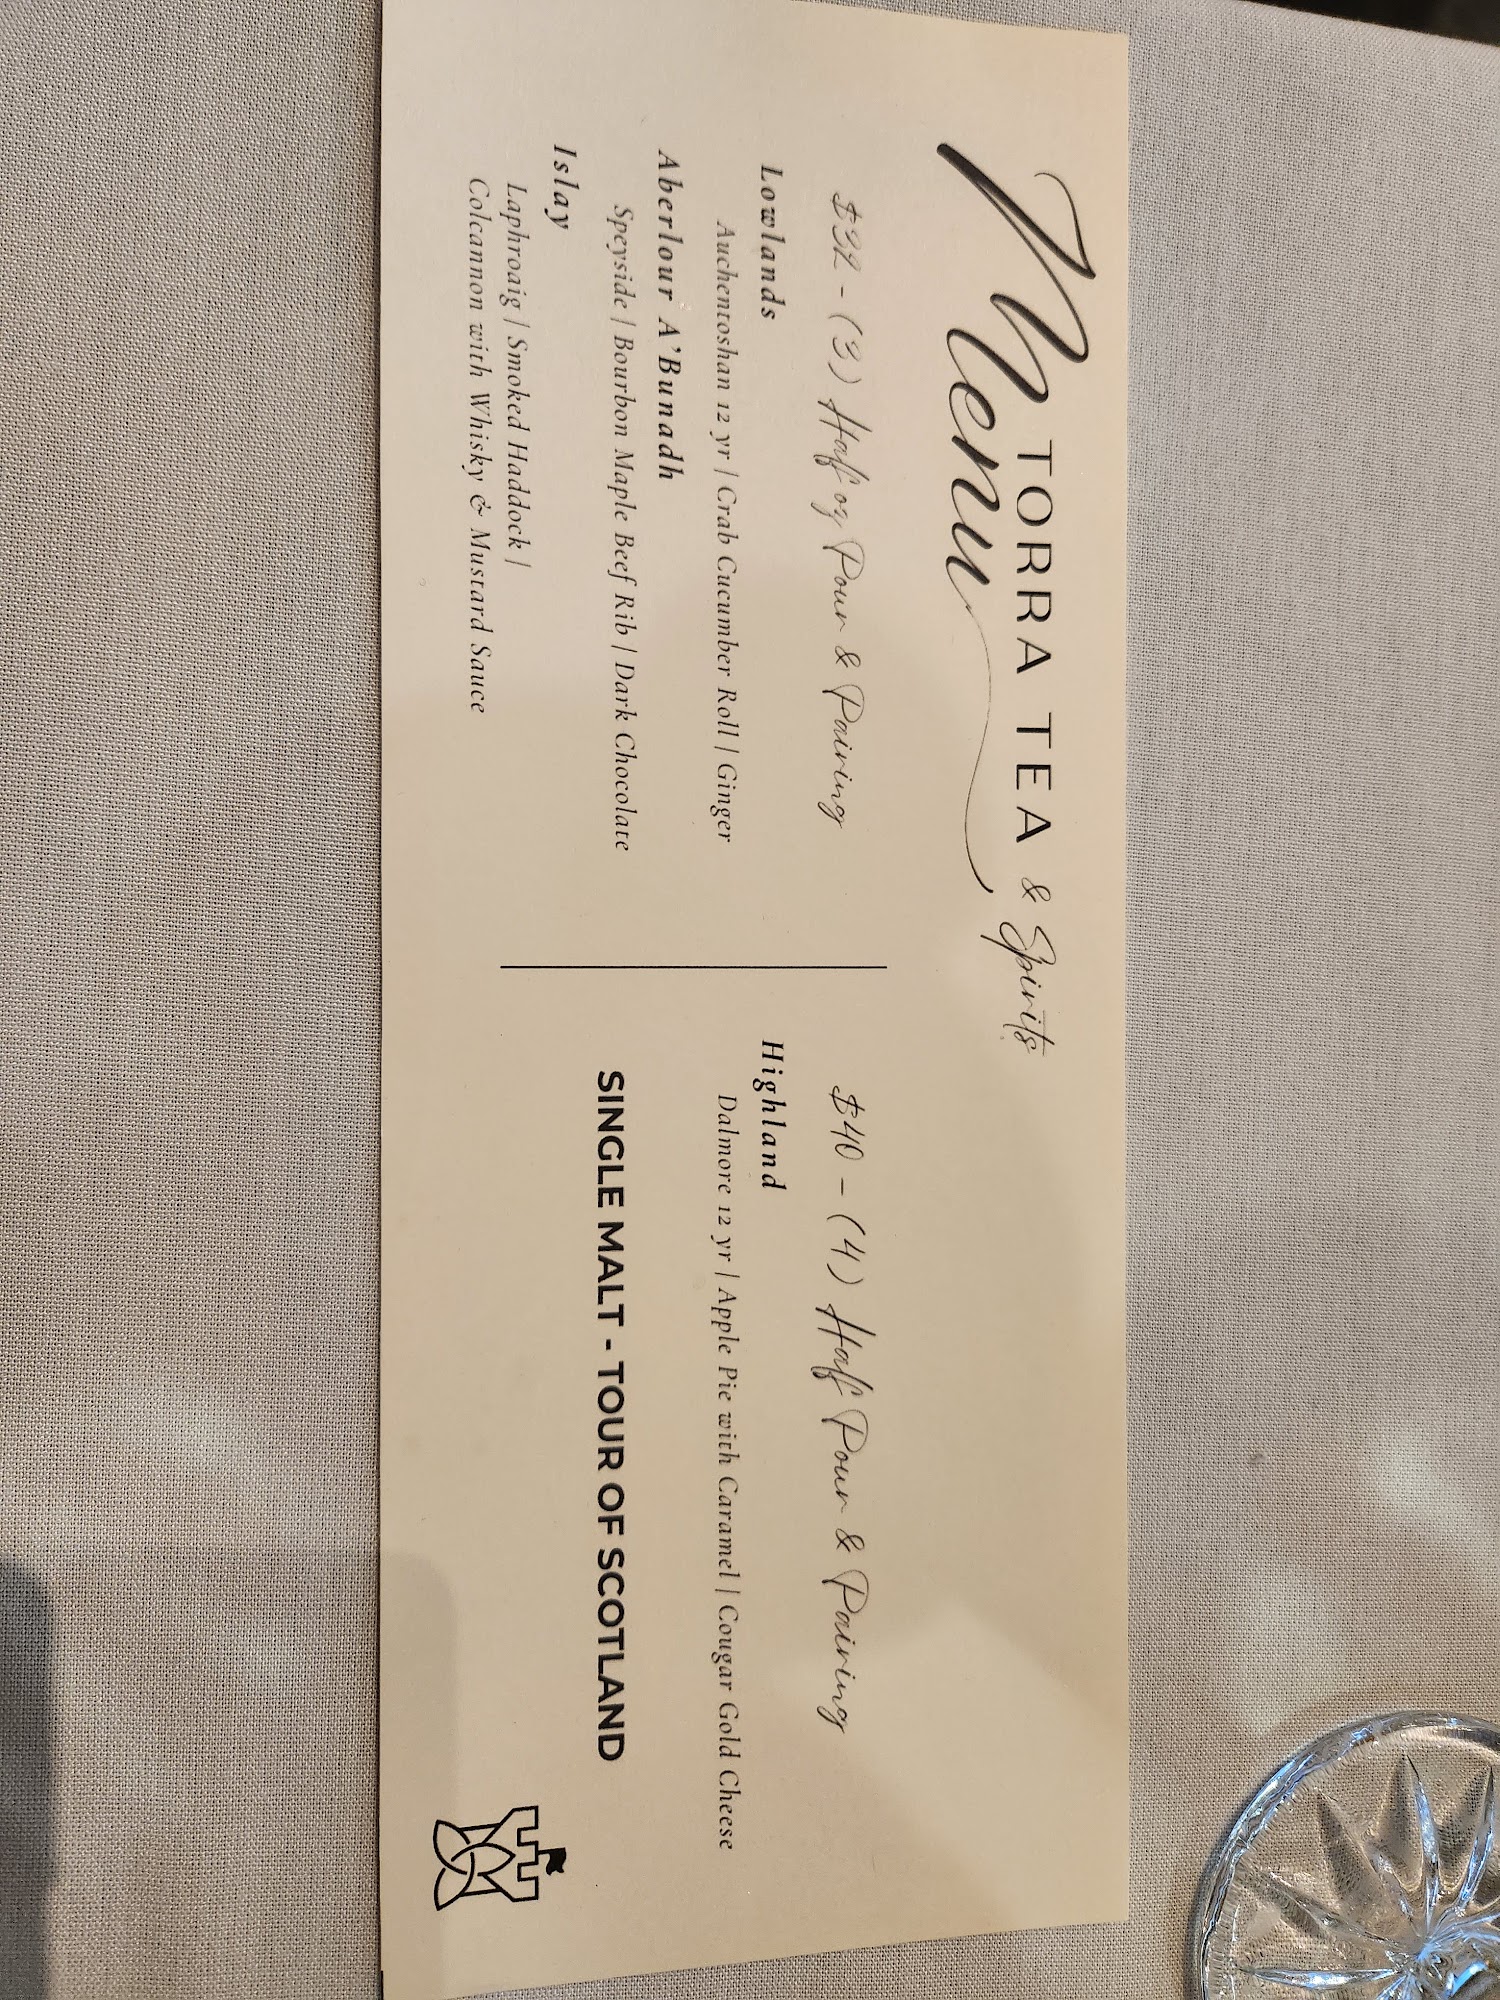 TORRA TEA & Spirits
Menu
$32 - (3) Half og Pour & Pairing
Lowlands
Auchentoshan 12 yr | Crab Cucumber Roll | Ginger
Aberlour A'Bunadh
Speyside | Bourbon Maple Beef Rib | Dark Chocolate
Islay
Laphroaig | Smoked Haddock |
Colcannon with Whisky & Mustard Sauce
$40 - (4) Half Pour & Pairing
Highland
Dalmore 12 yr | Apple Pie with Caramel | Cougar Gold Cheese
SINGLE MALT - TOUR OF SCOTLAND